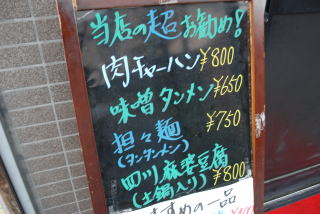 当店の超お勧め!
肉チャーハン ¥800
味噌タンメン ¥650
担々麺 ¥750
(タンタンメン)
四川麻婆豆腐
(土鍋入り) ¥800
すすめの一品